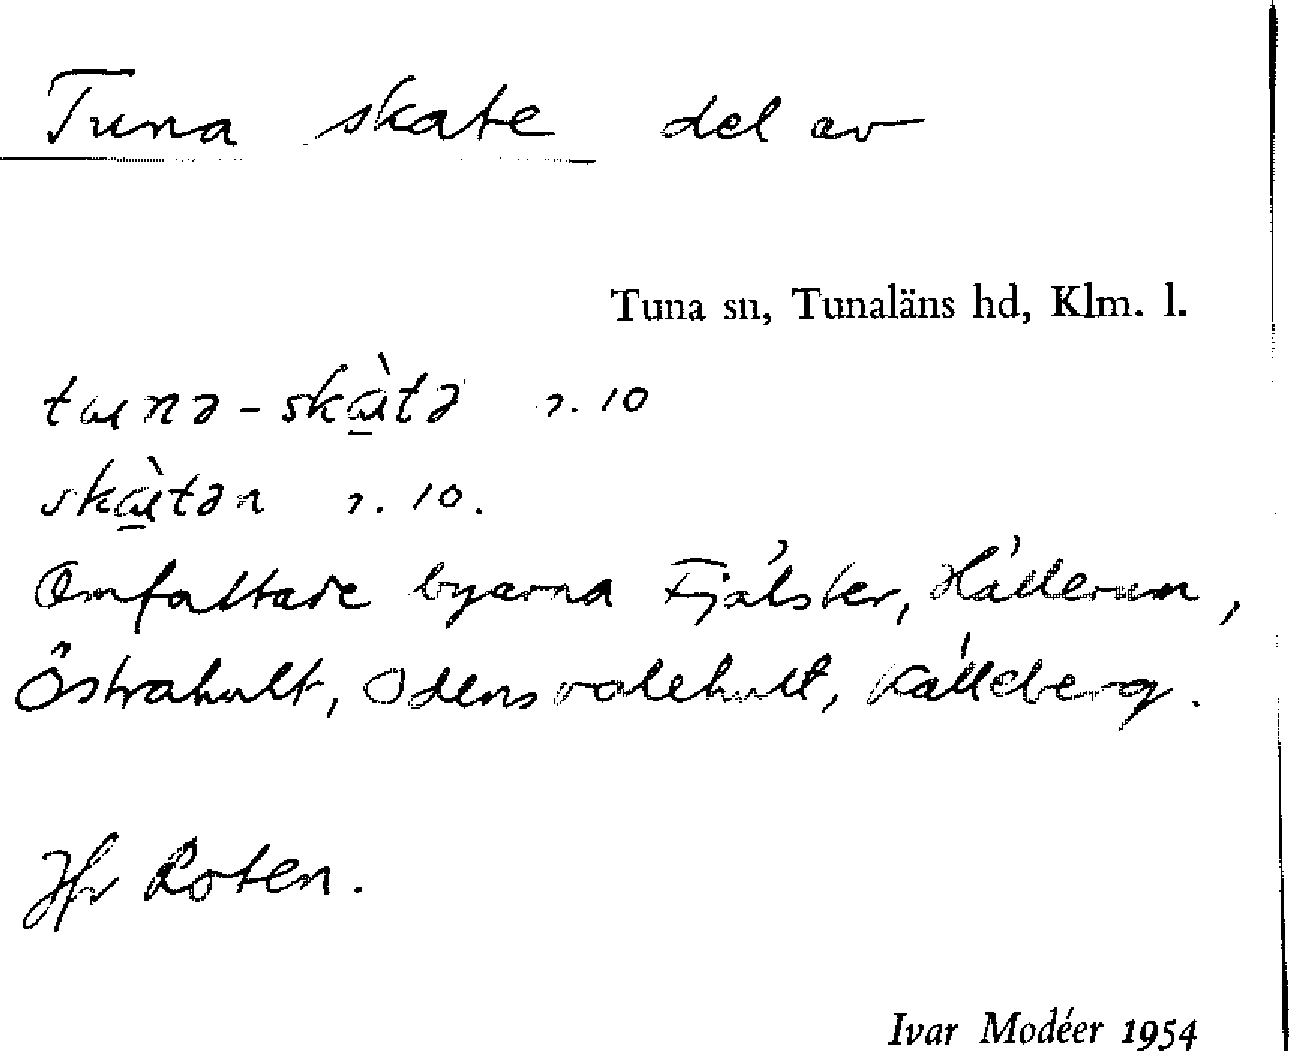 Tuna skate del av
Tuna sn, Tunaläns hd, Klm. l.
tɯnə-skɑ̀tə r. 10
skɑ̀tən r. 10.
Omfattade byarna Fjälster, Hällerum,
Östrahult, Odensvalehult, Källeberg.
Jfr Roten.
Ivar Modéer 1954